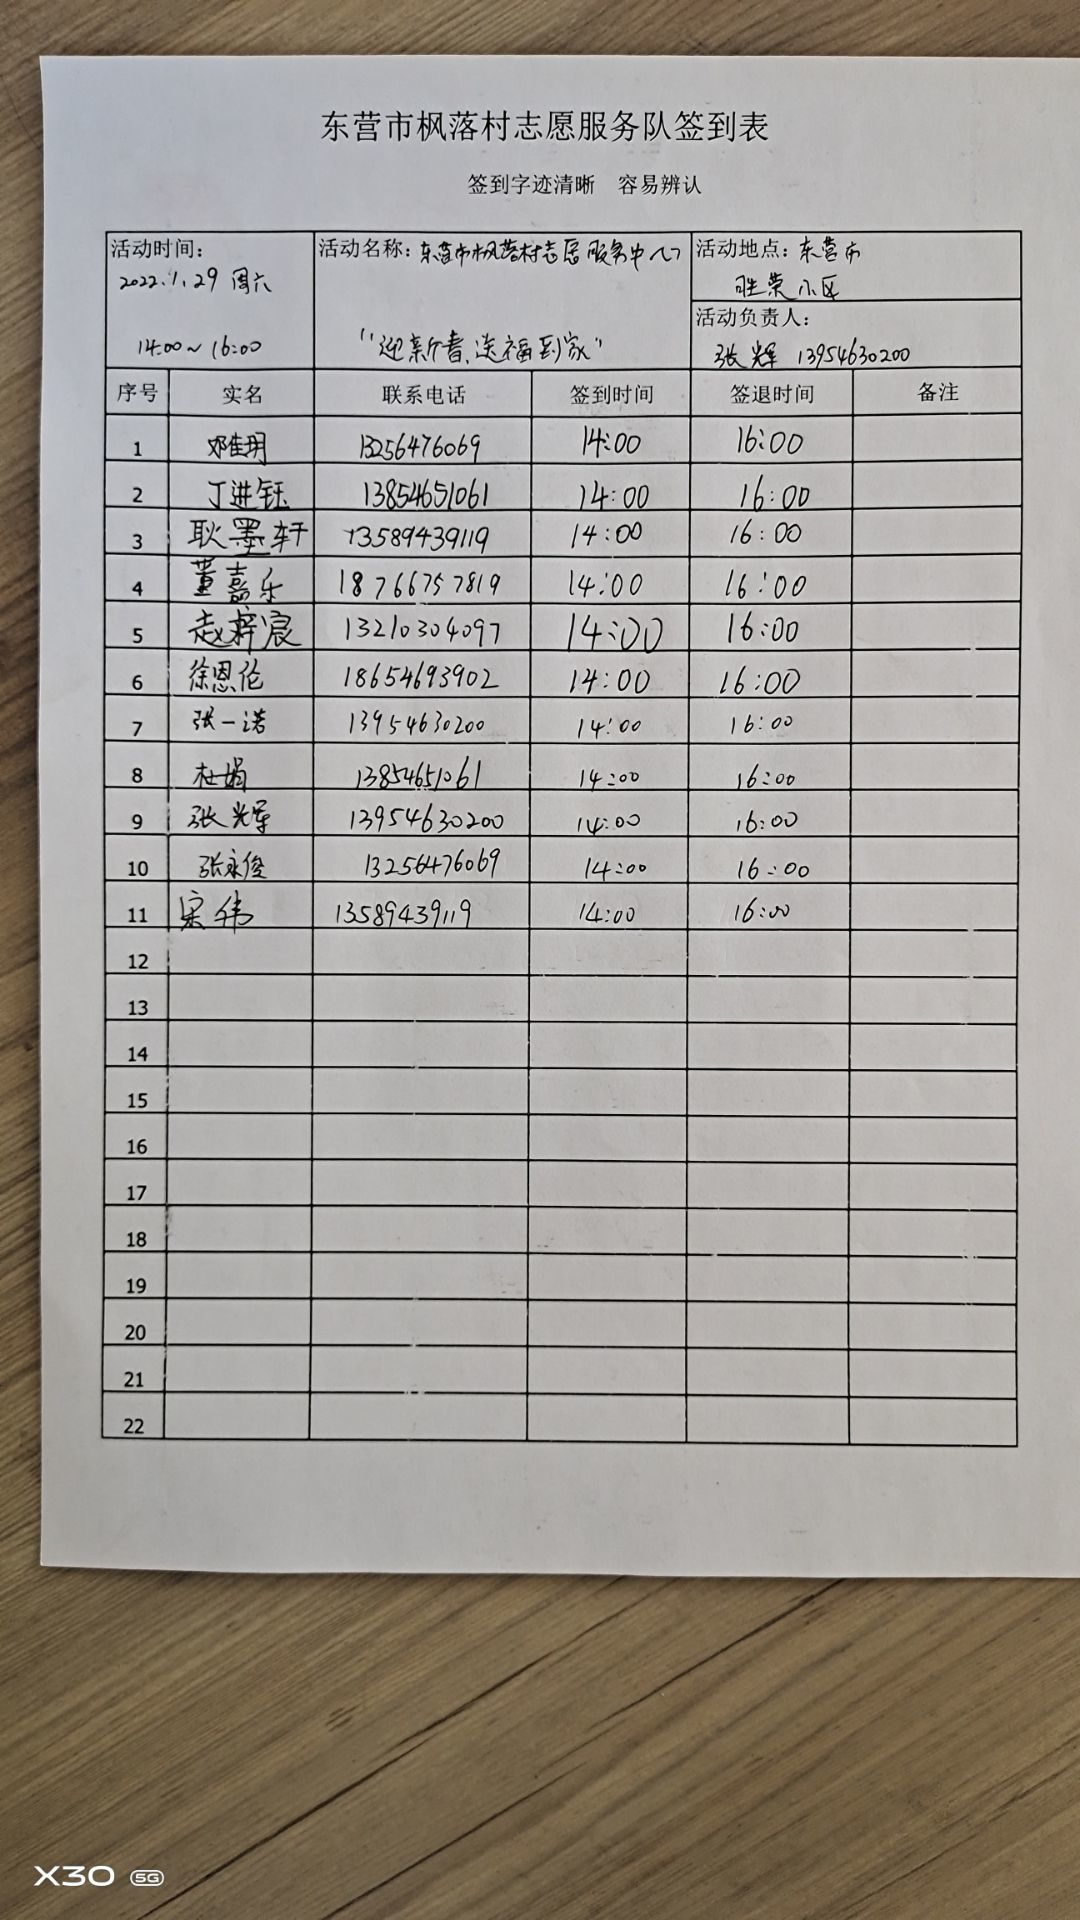 东营市枫落村志愿服务队签到表
签到字迹清晰 容易辨认
活动时间: 活动名称: 东营市枫落村志愿服务中心 活动地点: 东营市
2022.1.29 周六 胜荣小区
活动负责人:
14:00~16:00 "迎新春、送福到家" 张辉 13954630200
序号 实名 联系电话 签到时间 签退时间 备注
1 邓佳玥 13256476069 14:00 16:00
2 丁进钰 13854651061 14:00 16:00
3 耿墨轩 13589439119 14:00 16:00
4 董嘉乐 18766757819 14:00 16:00
5 赵梓宸 13210304097 14:00 16:00
6 徐恩伦 18654693902 14:00 16:00
7 张一诺 13954630200 14:00 16:00
8 杜娟 13854651061 14:00 16:00
9 张光辉 13954630200 14:00 16:00
10 张永俊 13256476069 14:00 16:00
11 宋伟 13589439119 14:00 16:00
12
13
14
15
16
17
18
19
20
21
22
X30 5G